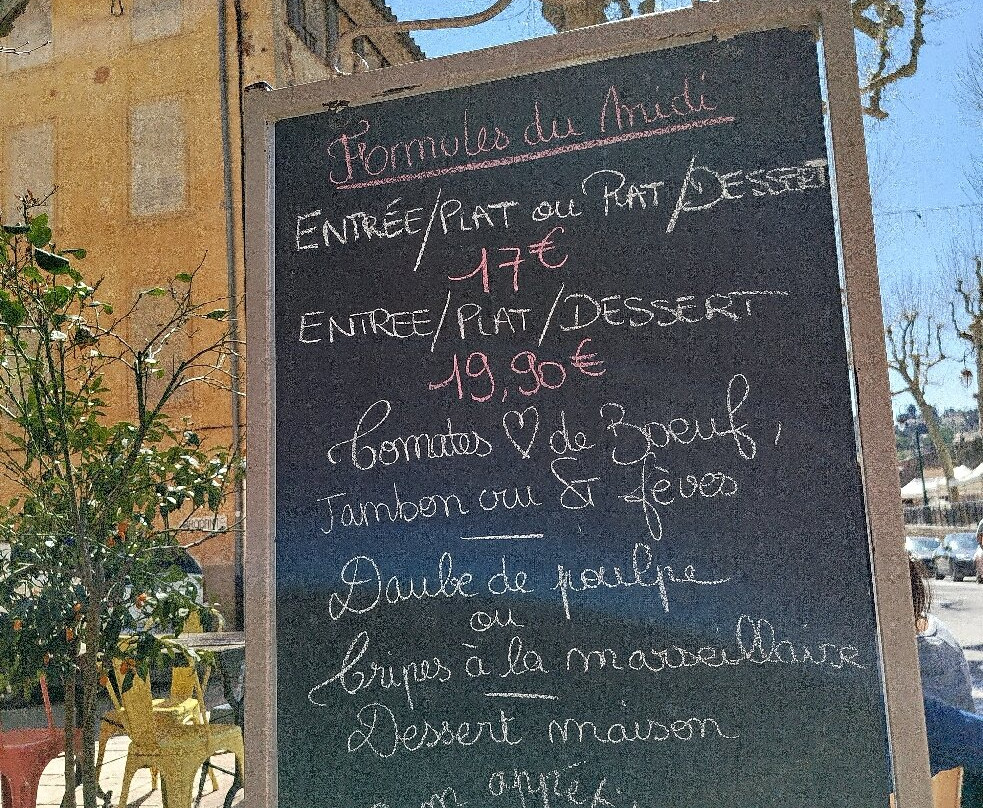 Formules du Midi
ENTRÉE/PLAT ou PLAT/DESSERT
17€
ENTREE/PLAT/DESSERT
19,90€
Tomates ♡ de Boeuf,
Jambon cru & fèves
Daube de poulpe
ou
Tripes à la marseillaise
Dessert maison